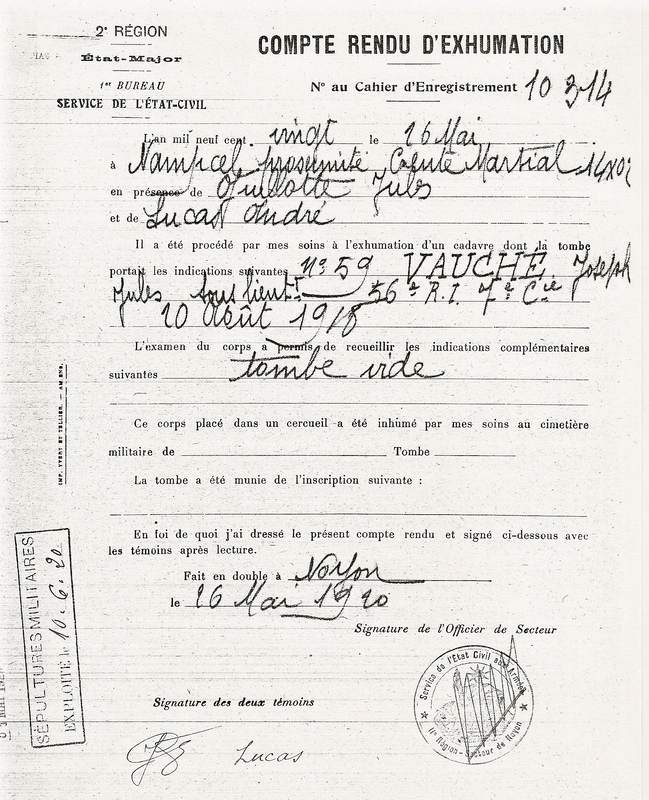 2e RÉGION
État-Major
1er BUREAU
SERVICE DE L'ÉTAT-CIVIL
COMPTE RENDU D'EXHUMATION
N° au Cahier d'Enregistrement 10 314
L'an mil neuf cent vingt le 26 Mai
à Nampcel proximité Martial
en présence de Jules
et de Lucas André
Il a été procédé par mes soins à l'exhumation d'un cadavre dont la tombe
portait les indications suivantes N° 59 VAUCHÉ Joseph
Jules Sous lieutt 56e R.I. 7e Cie
20 Août 1918
L'examen du corps a permis de recueillir les indications complémentaires
suivantes tombe vide
Ce corps placé dans un cercueil a été inhumé par mes soins au cimetière
militaire de Tombe
La tombe a été munie de l'inscription suivante :
En foi de quoi j'ai dressé le présent compte rendu et signé ci-dessous avec
les témoins après lecture.
Fait en double à Noyon
le 26 Mai 1920
Signature de l'Officier de Secteur
Service de l'Etat Civil aux Armées
IIe Région - Secteur de Noyon
Signature des deux témoins
Lucas
IMP. YVERT ET TELLIER. — AMIENS.
SÉPULTURES MILITAIRES
EXPLOITÉ le 10.6.20